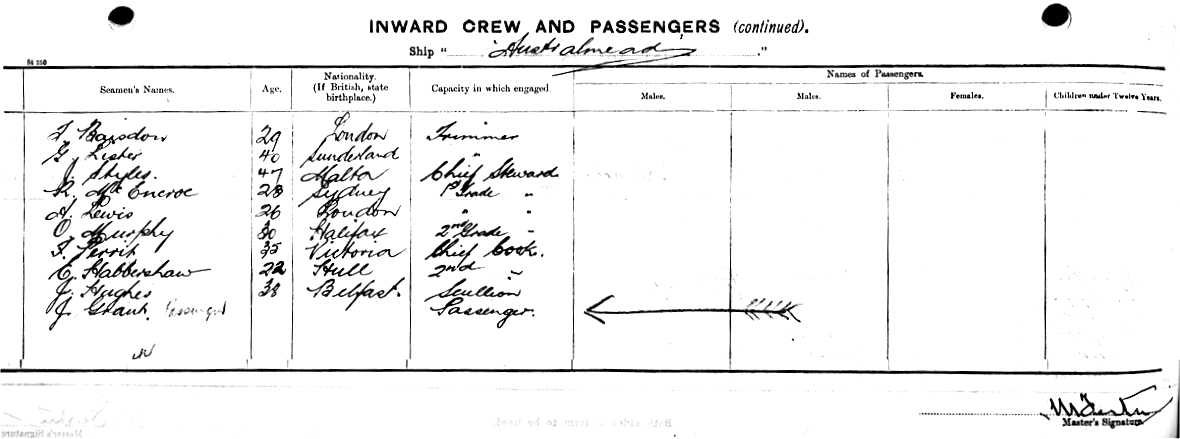 INWARD CREW AND PASSENGERS (continued).
Ship "Australmead"
Seamen's Names. Age. Nationality. (If British, state birthplace.) Capacity in which engaged Names of Passengers.
Males. Males. Females. Children under Twelve Years.
F. Baisdon 29 London Trimmer
G. Lister 40 Sunderland "
J. Styles 47 Malta Chief Steward
R. McEncroe 28 Sydney 1st Grade "
A. Lewis 26 London " "
O. Murphy 30 Halifax 2nd Grade "
F. Perrit 35 Victoria Chief Cook.
E. Habbershaw 22 Hull 2nd "
J. Hughes 38 Belfast. Scullion
J. Grant. Passenger Passenger.
Master's Signature